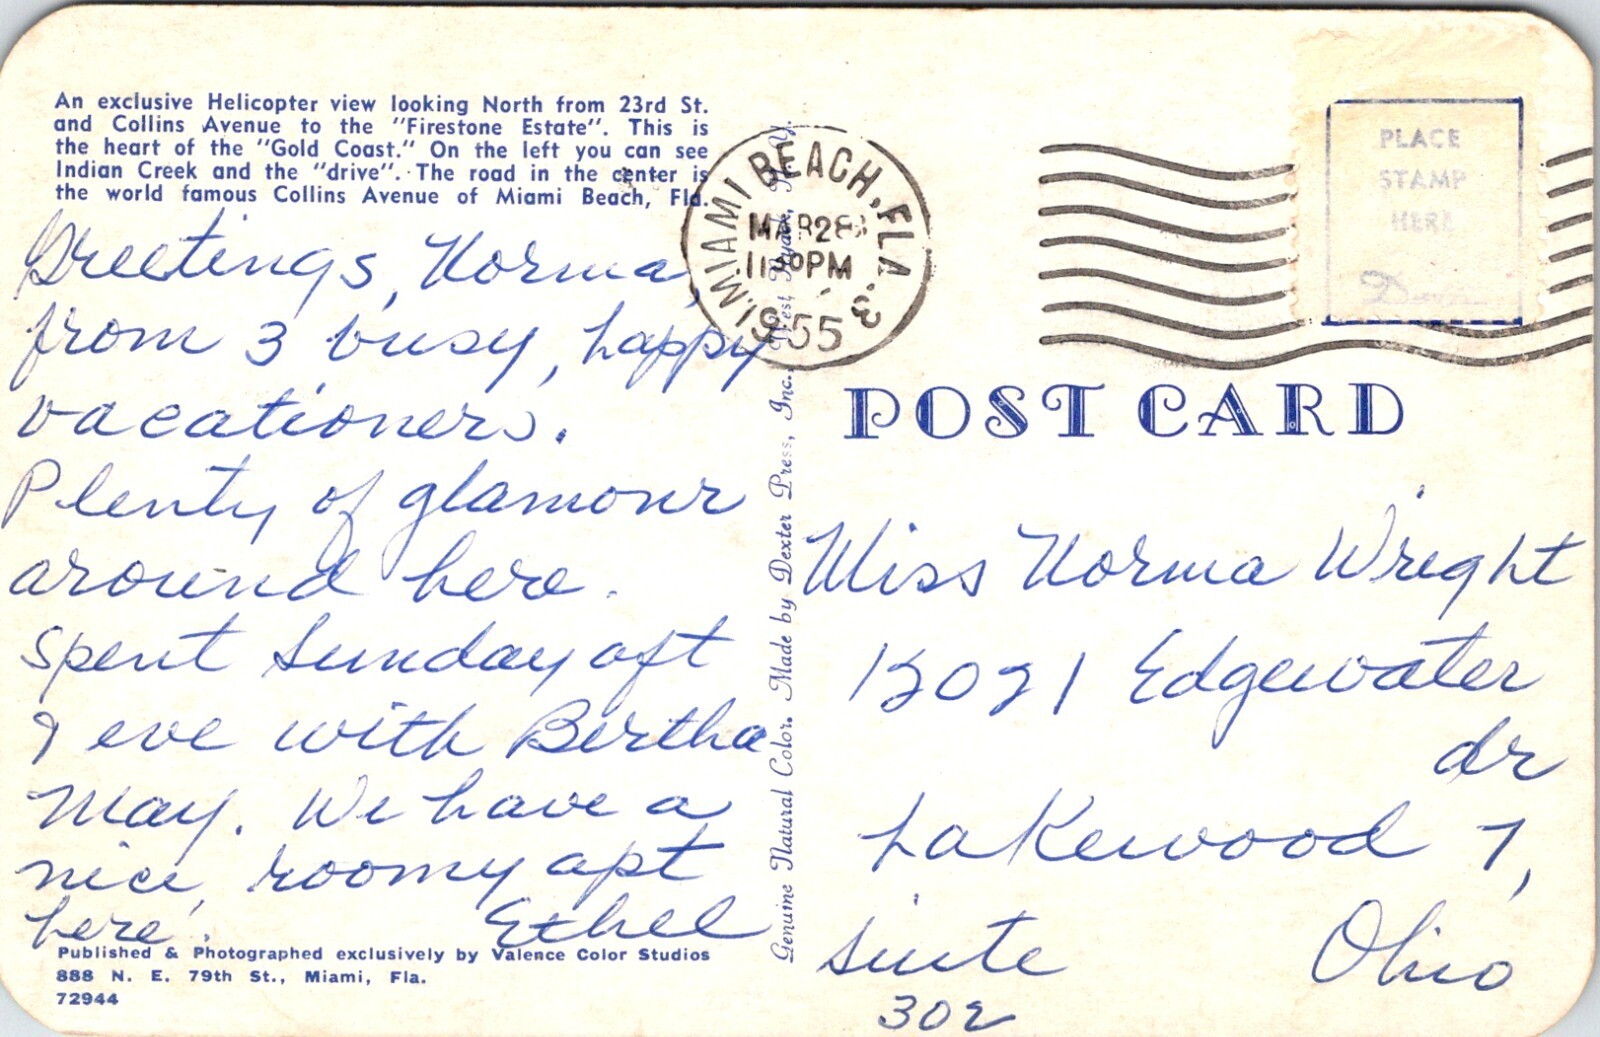 An exclusive Helicopter view looking North from 23rd St.
and Collins Avenue to the "Firestone Estate". This is
the heart of the "Gold Coast." On the left you can see
Indian Creek and the "drive". The road in the center is
the world famous Collins Avenue of Miami Beach, Fla.
Greetings, Norma,
from 3 busy, happy
vacationers.
Plenty of glamour
around here.
Spent Sunday aft
& eve with Bertha
May. We have a
nice, roomy apt
here.
Ethel
Published & Photographed exclusively by Valence Color Studios
888 N. E. 79th St., Miami, Fla.
72944
Genuine Natural Color. Made by Dexter Press, Inc., West Nyack, N. Y.
MIAMI BEACH, FLA. 3
MAR 28
PM
1955
PLACE
STAMP
HERE
POST CARD
Miss Norma Wright
12021 Edgewater
dr
Lakewood 7,
Suite Ohio
302